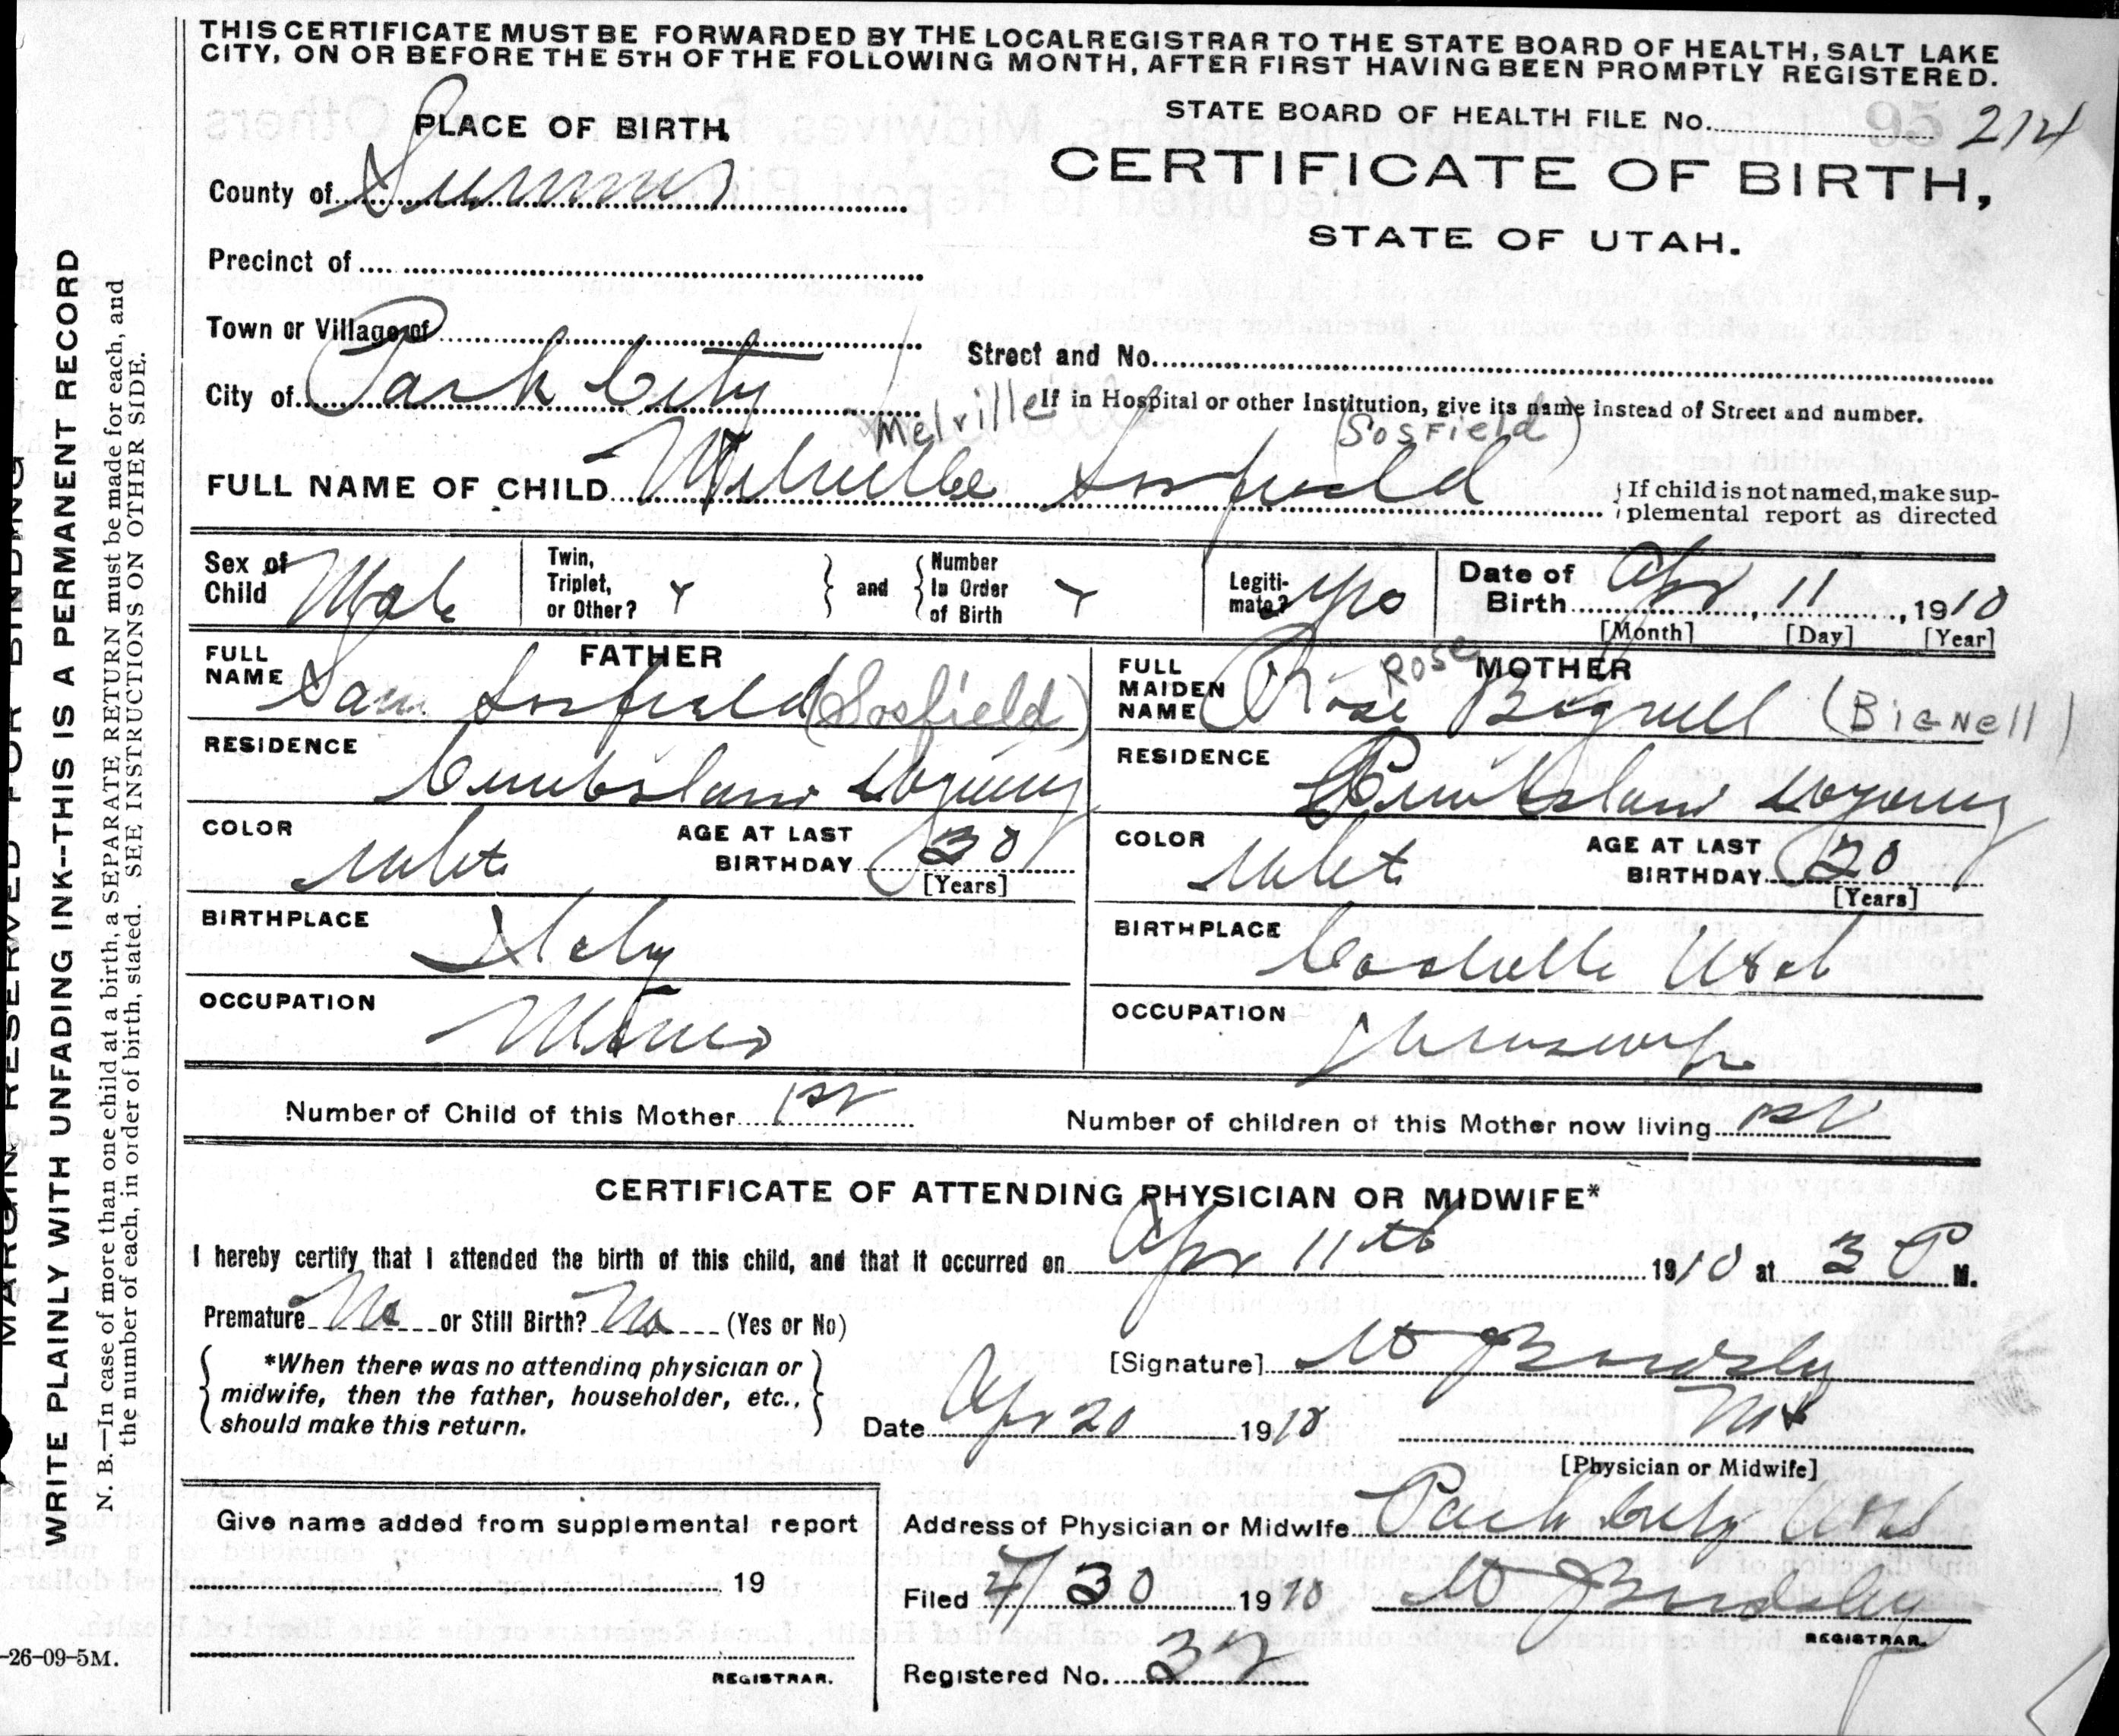 THIS CERTIFICATE MUST BE FORWARDED BY THE LOCAL REGISTRAR TO THE STATE BOARD OF HEALTH, SALT LAKE
CITY, ON OR BEFORE THE 5TH OF THE FOLLOWING MONTH, AFTER FIRST HAVING BEEN PROMPTLY REGISTERED.
STATE BOARD OF HEALTH FILE No. 95 214
PLACE OF BIRTH
CERTIFICATE OF BIRTH,
STATE OF UTAH.
County of
Precinct of
Town or Village of
Street and No.
City of Park City
If in Hospital or other Institution, give its name instead of Street and number.
Melville (Sosfield)
FULL NAME OF CHILD Melville Sosfield
If child is not named, make sup-
plemental report as directed
Sex of Child Male
Twin, Triplet, or Other?
and
Number In Order of Birth
Legiti-mate? Yes
Date of Birth Apr 11, 1910
[Month] [Day] [Year]
FATHER
FULL NAME Sam Sosfield (Sosfield)
RESIDENCE
COLOR
AGE AT LAST BIRTHDAY 30
[Years]
BIRTHPLACE Italy
OCCUPATION Miner
MOTHER
FULL MAIDEN NAME Rose Rose Bignell (BIGNell)
RESIDENCE
COLOR
AGE AT LAST BIRTHDAY 20
[Years]
BIRTHPLACE Coalville Utah
OCCUPATION Housewife
Number of Child of this Mother 1st
Number of children of this Mother now living 1st
CERTIFICATE OF ATTENDING PHYSICIAN OR MIDWIFE*
I hereby certify that I attended the birth of this child, and that it occurred on Apr 11th 1910 at 3 P M.
Premature No or Still Birth? No (Yes or No)
*When there was no attending physician or
midwife, then the father, householder, etc.,
should make this return.
[Signature]
Date Apr 20 1910
[Physician or Midwife]
Give name added from supplemental report
19
REGISTRAR.
Address of Physician or Midwife Park City
Filed 4/30 1910
REGISTRAR.
Registered No. 32
MARGIN RESERVED FOR BINDING
WRITE PLAINLY WITH UNFADING INK--THIS IS A PERMANENT RECORD
N. B.—In case of more than one child at a birth, a SEPARATE RETURN must be made for each, and
the number of each, in order of birth, stated. SEE INSTRUCTIONS ON OTHER SIDE.
-26-09-5M.